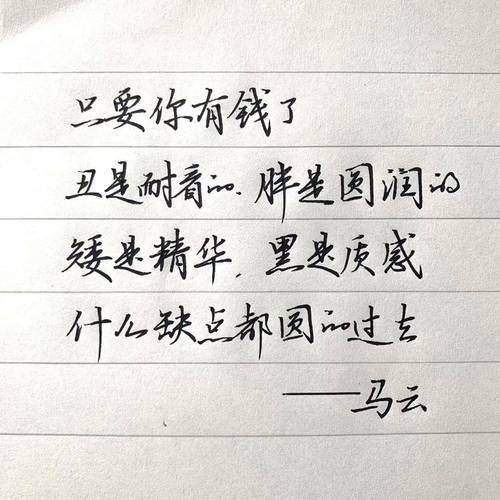 只要你有钱了
丑是耐看的.胖是圆润的
矮是精华.黑是质感
什么缺点都圆的过去
——马云